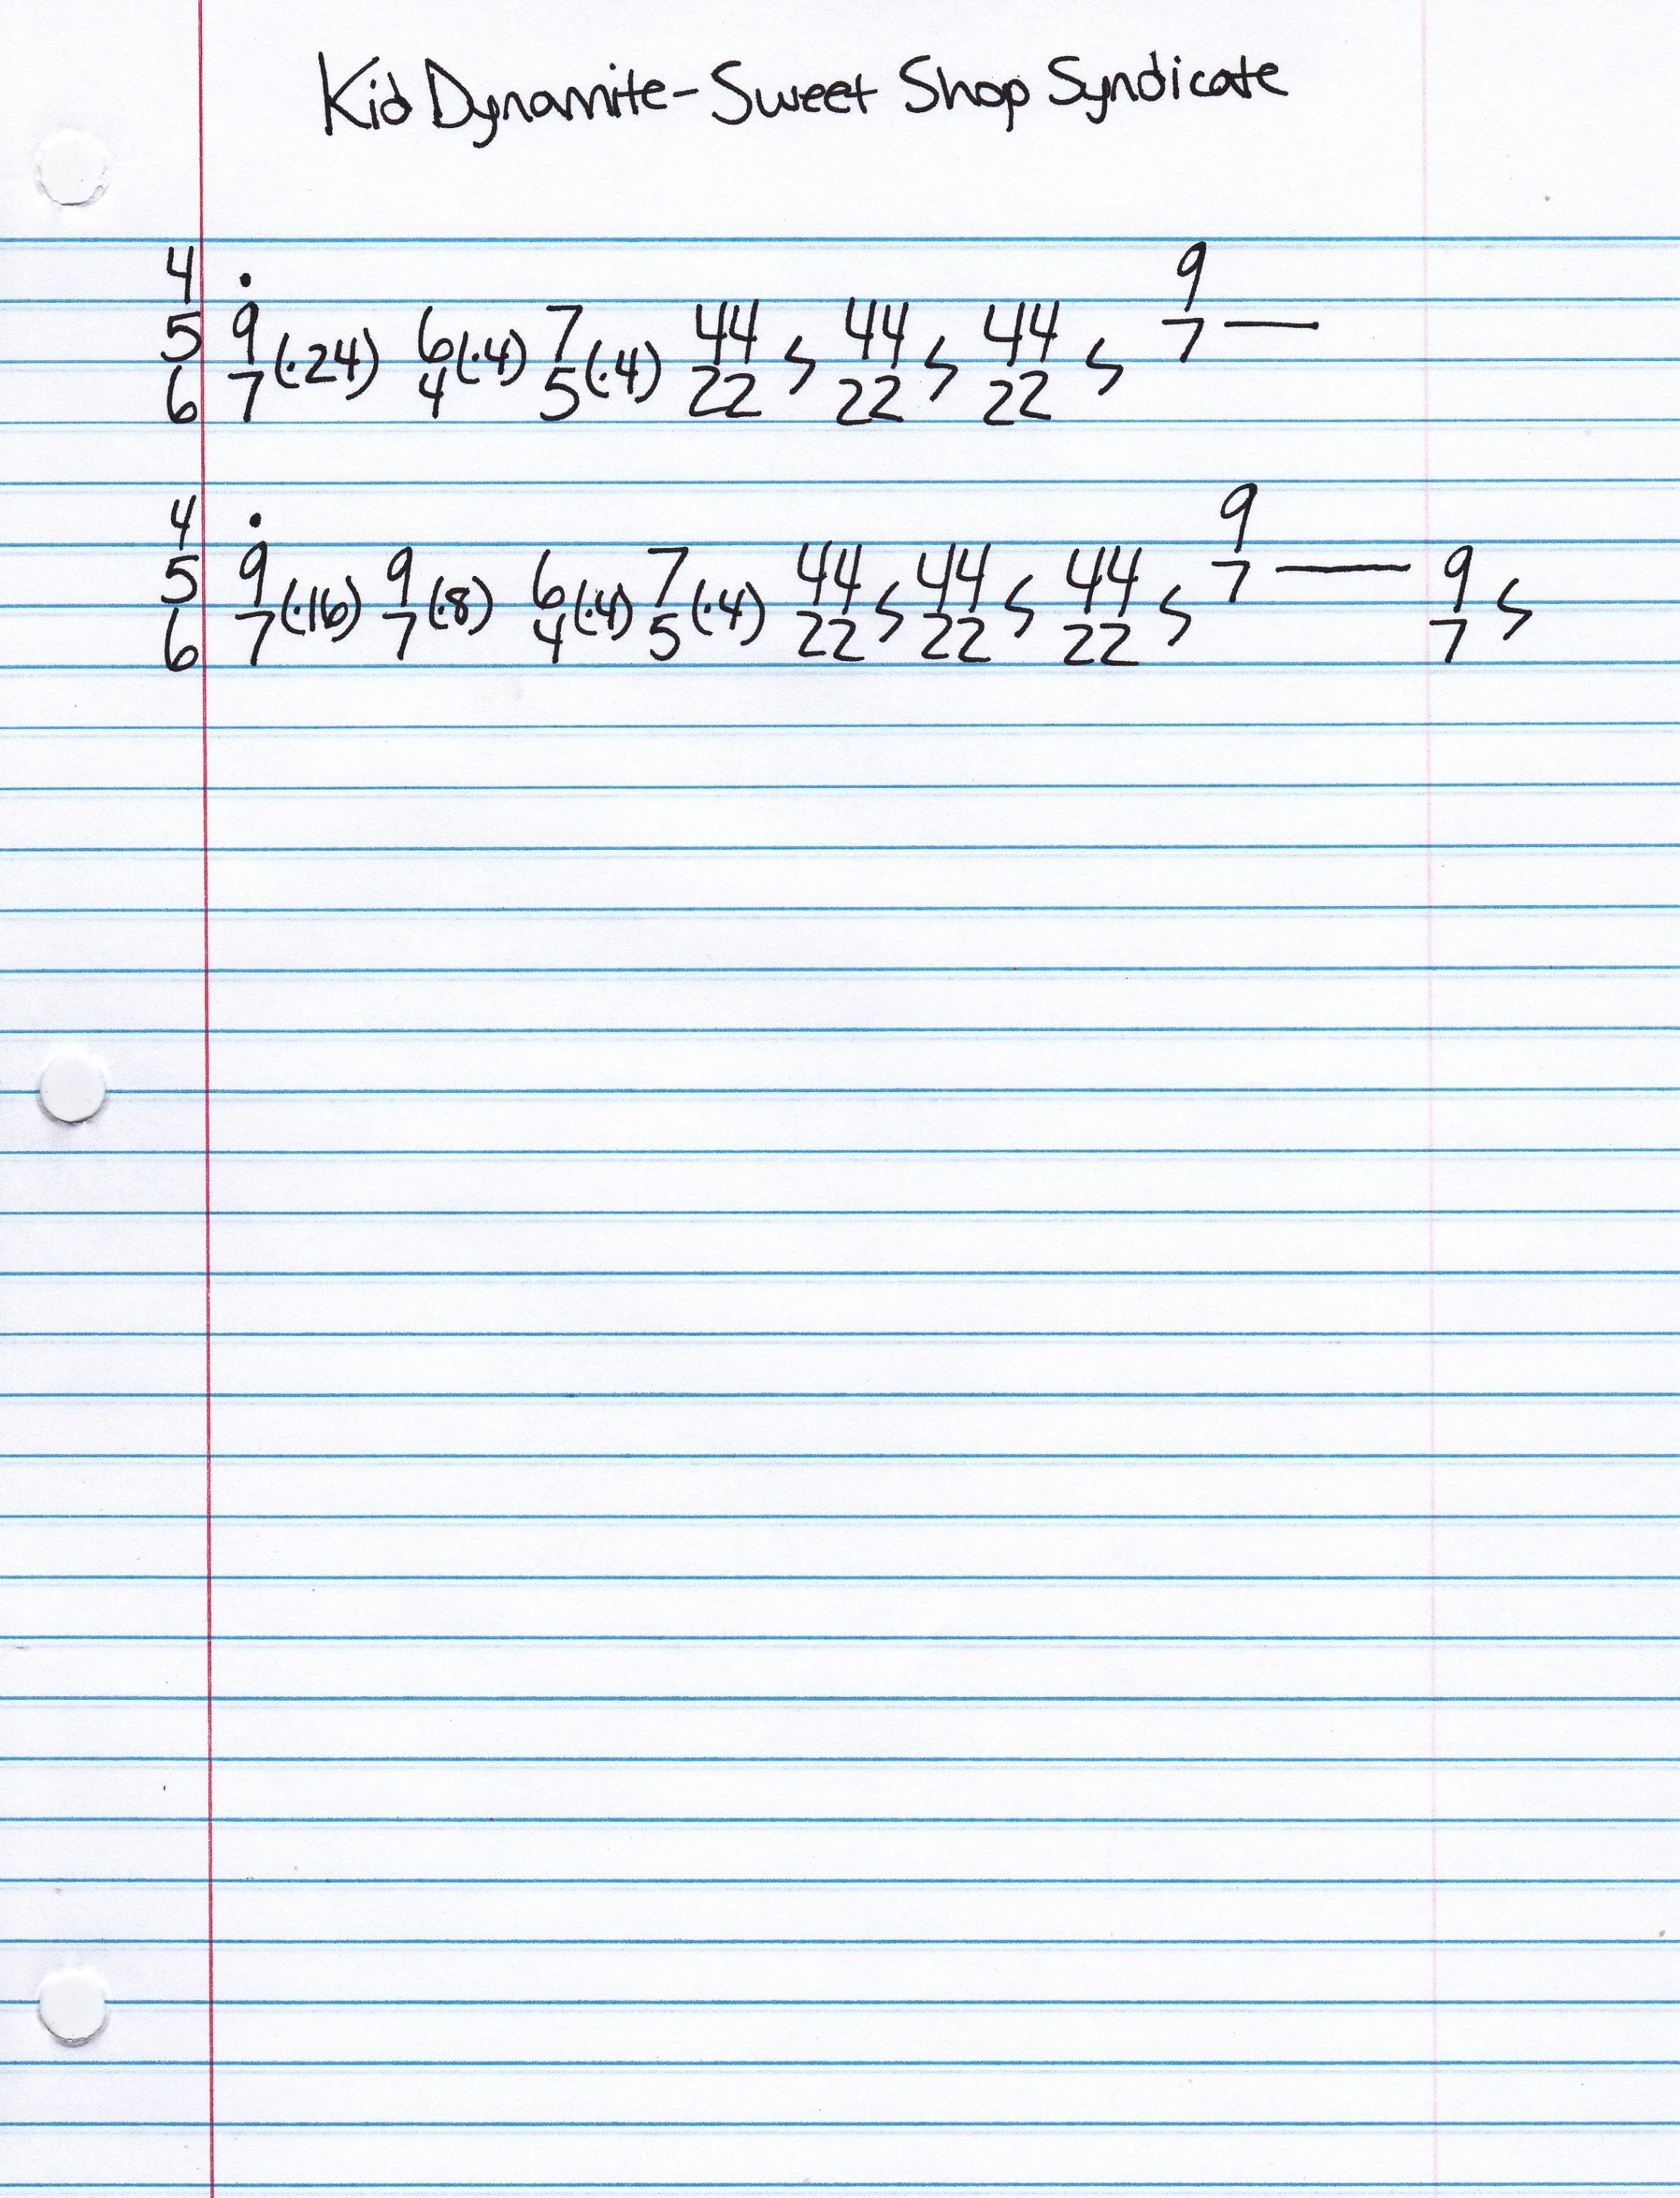 Kid Dynamite - Sweet Shop Syndicate
4 . 9
5 9 (·24) 6 (·4) 7 (·4) 44 44 44 7 —
6 7 4 5 22 22 22
4 . 9
5 9 (·16) 9 (·8) 6 (·4) 7 (·4) 44 44 44 7 — 9
6 7 7 4 5 22 22 22 7